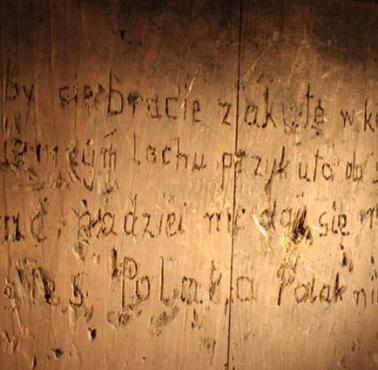 by się bracie zakuto w k
iemnym lochu przykuto do ś
nać, nadziei nie daj się
Polaka Polak ni